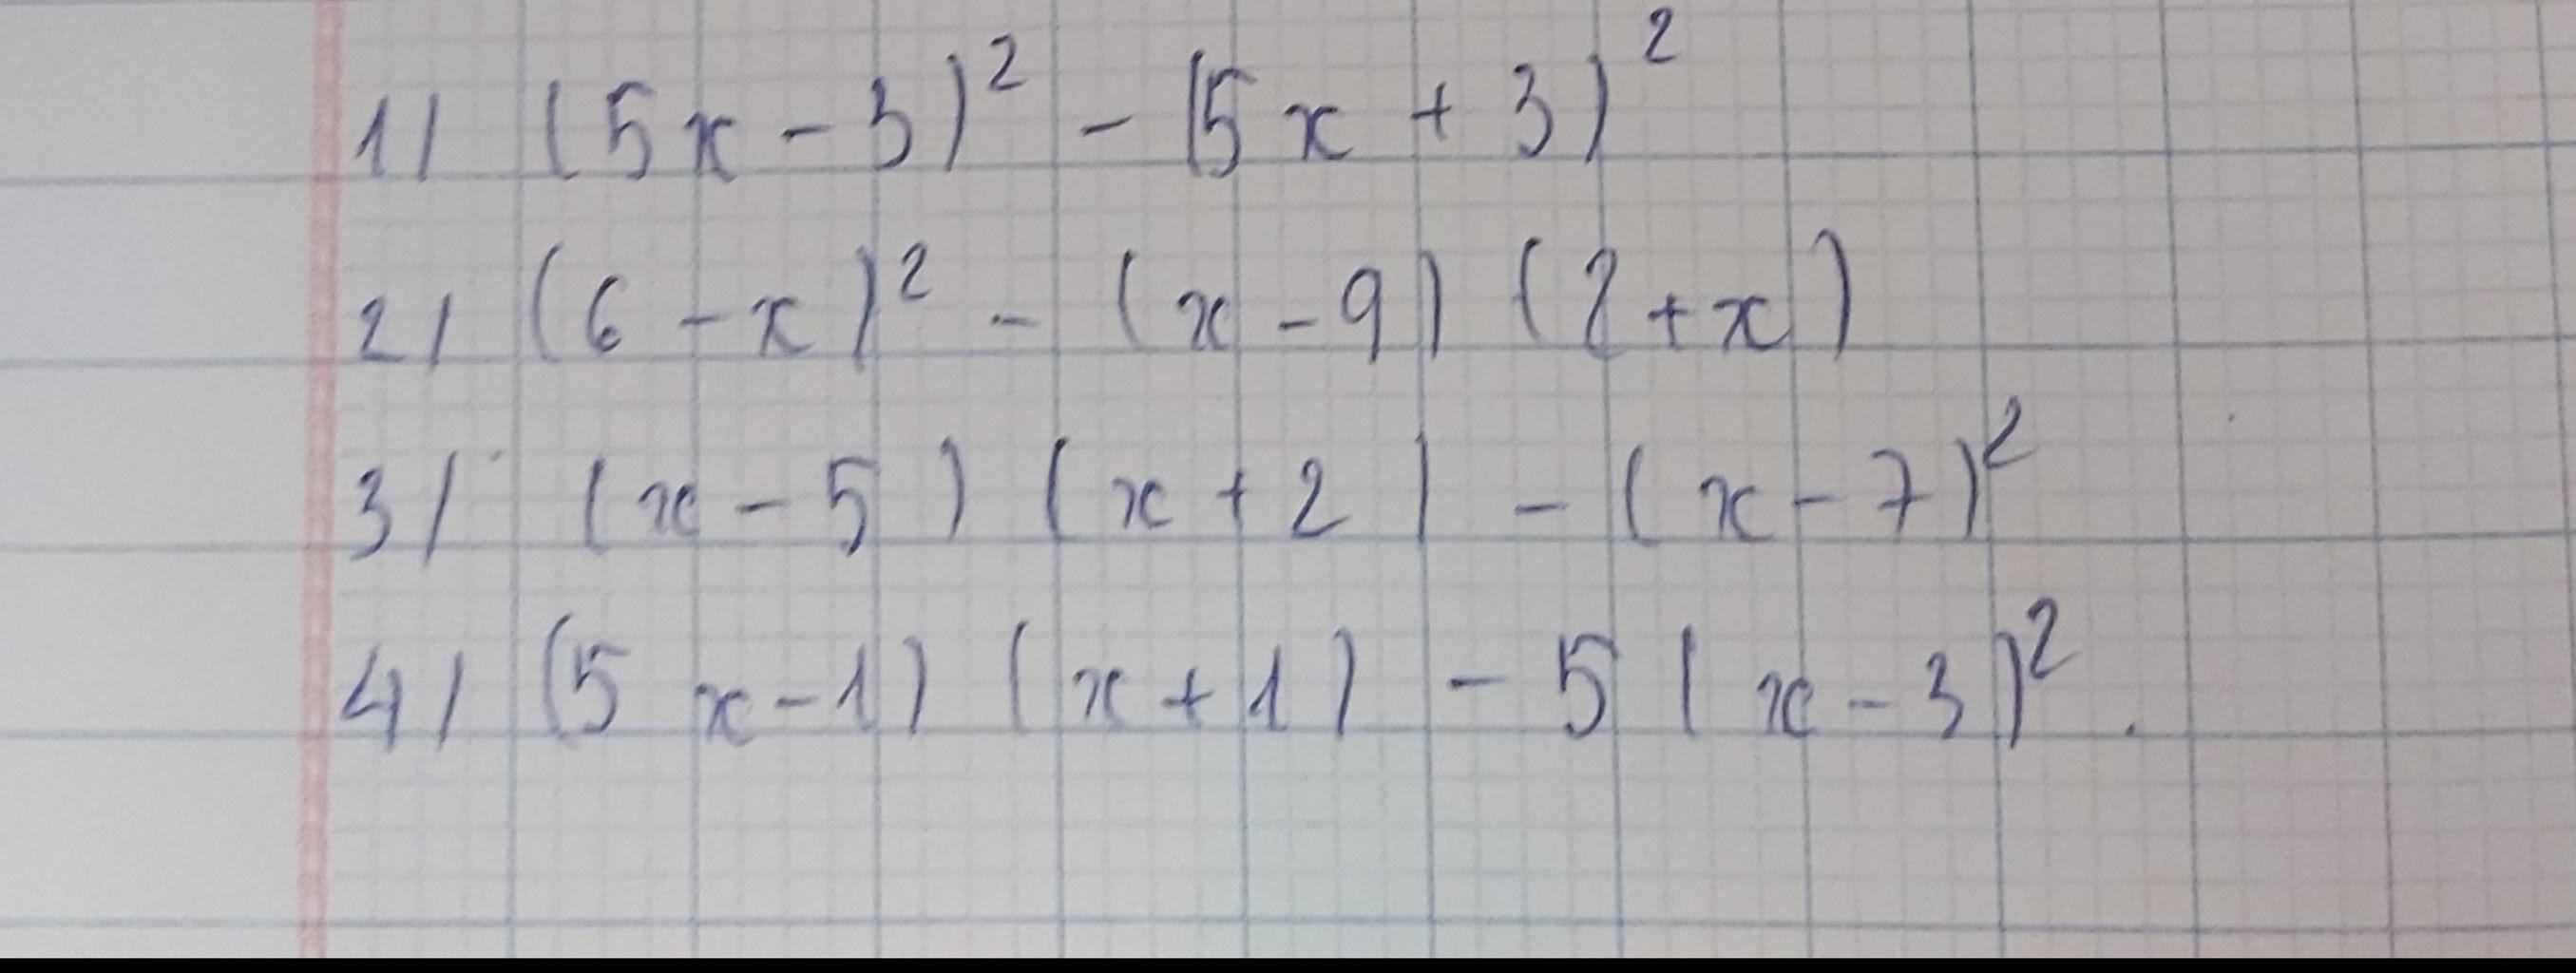 1/ (5x - 3)² - (5x + 3)²
2/ (6 - x)² - (x - 9) (2 + x)
3/ (x - 5) (x + 2) - (x - 7)²
4/ (5x - 1) (x + 1) - 5 (x - 3)².